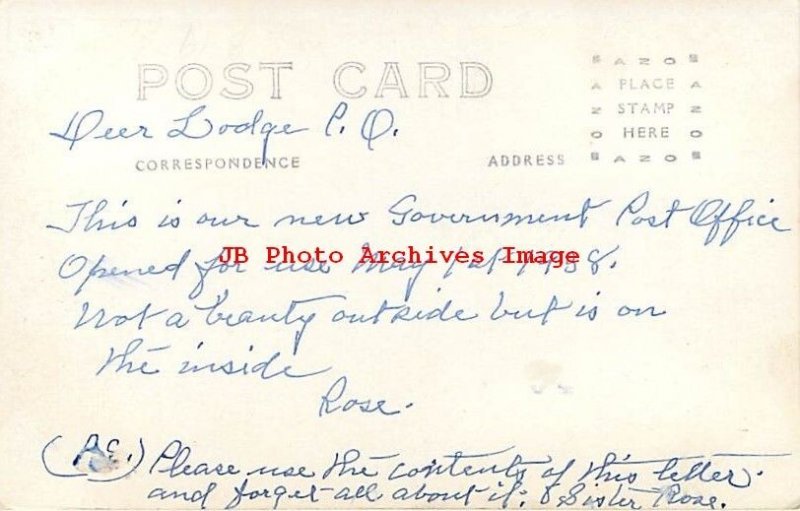 POST CARD
AZOS
PLACE
STAMP
HERE
AZOS
Deer Lodge P.O.
CORRESPONDENCE ADDRESS
This is our new Government Post Office
JB Photo Archives Image
Opened for use May 1st 1938.
Not a beauty outside but is on
the inside
Rose.
(P.S.) Please use the contents of this letter.
and forget all about it. Sister Rose.